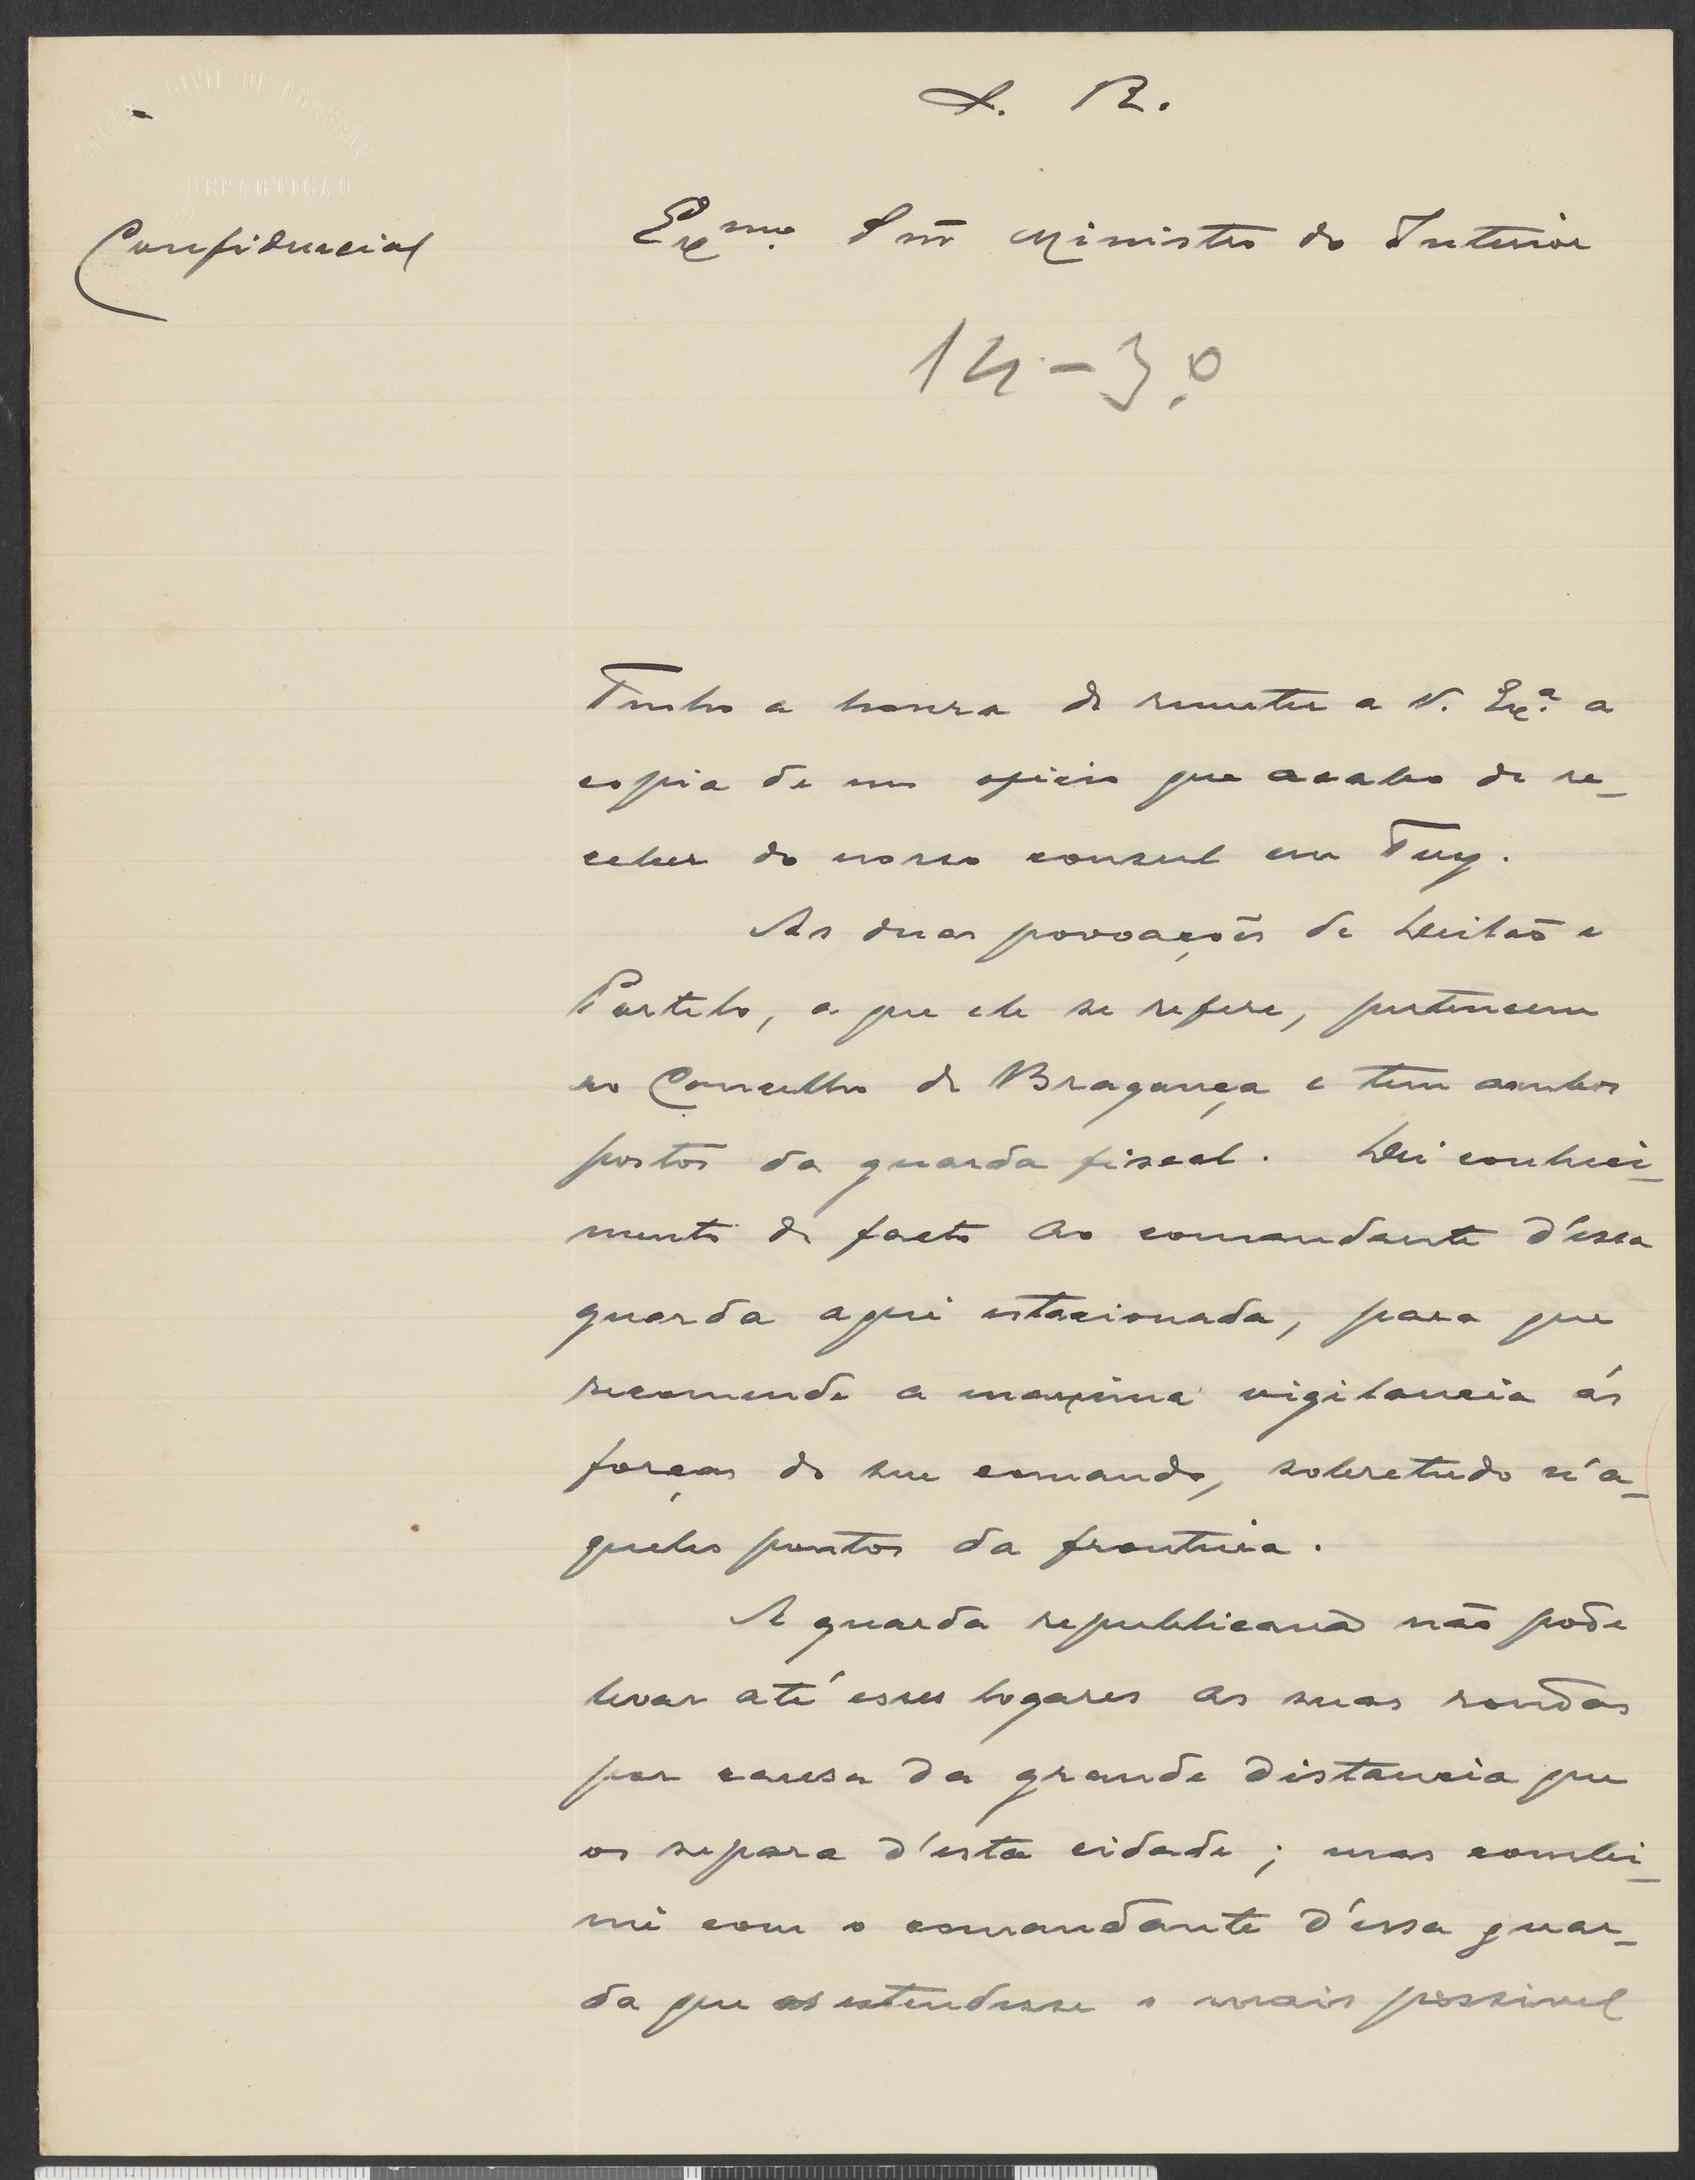 S. R.
Confidencial
Ex.mo Snr Ministro do Interior
14-3.º
Tenho a honra de remeter a V. Ex.ª a
copia de um oficio que acabo de re-
ceber do nosso consul em Tuy.
As duas povoações de Deilão e
Portelo, a que ele se refere, pertencem
ao Concelho de Bragança e tem ambos
postos da guarda fiscal. Dei conheci-
mento do facto ao comandante d'essa
guarda aqui estacionada, para que
recomende a maxima vigilancia ás
forças do seu comando, sobretudo n'a-
queles pontos da fronteira.
A guarda republicana não pode
levar até esses logares as suas rondas
por causa da grande distancia que
os separa d'esta cidade; mas combi-
nei com o comandante d'essa guar-
da que as estendesse o mais possivel